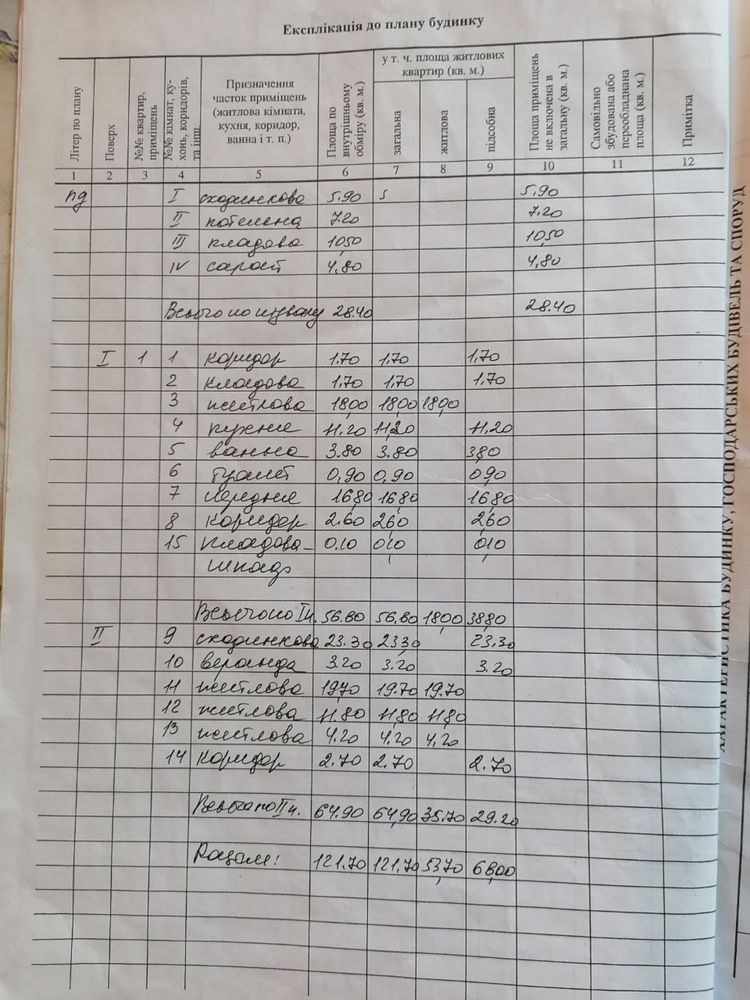 Експлікація до плану будинку
Літер по плану | Поверх | №№ квартир, приміщень | №№ кімнат, ку-хонь, коридорів, та інш. | Призначення часток приміщень (житлова кімната, кухня, коридор, ванна і т. п.) | Площа по внутрішньому обміру (кв. м.) | у т. ч. площа житлових квартир (кв. м.) | загальна | житлова | підсобна | Площа приміщень не включена в загальну (кв. м.) | Самовільно збудована або переобладнана площа (кв. м.) | Примітка
1 2 3 4 5 6 7 8 9 10 11 12
пд I сходинкова 5.90 5 5.90
II котельна 7.20 7.20
III кладова 10,50 10,50
IV сарай 4,80 4,80
Всього по підвалу 28.40 28.40
I 1 1 коридор 1.70 1,70 1,70
2 кладова 1,70 1,70 1,70
3 житлова 18,00 18,00 18,00
4 кухня 11.20 11,20 11,20
5 ванна 3.80 3,80 3,80
6 туалет 0,90 0,90 0,90
7 передня 16,80 16,80 16,80
8 коридор 2.60 2,60 2,60
15 кладова- 0,10 0,10 0,10
шкаф
Всього по I п. 56.80 56,80 18,00 38,80
II 9 сходинкова 23.30 23,30 23,30
10 веранда 3.20 3.20 3.20
11 житлова 19,70 19.70 19.70
12 житлова 11.80 11,80 11,80
13 житлова 4.20 4,20 4,20
14 коридор 2.70 2.70 2.70
Всього по II п. 64.90 64,90 35.70 29.20
Разом: 121.70 121,70 53,70 68,00
ХАРАКТЕРИСТИКА БУДИНКУ, ГОСПОДАРСЬКИХ БУДІВЕЛЬ ТА СПОРУД